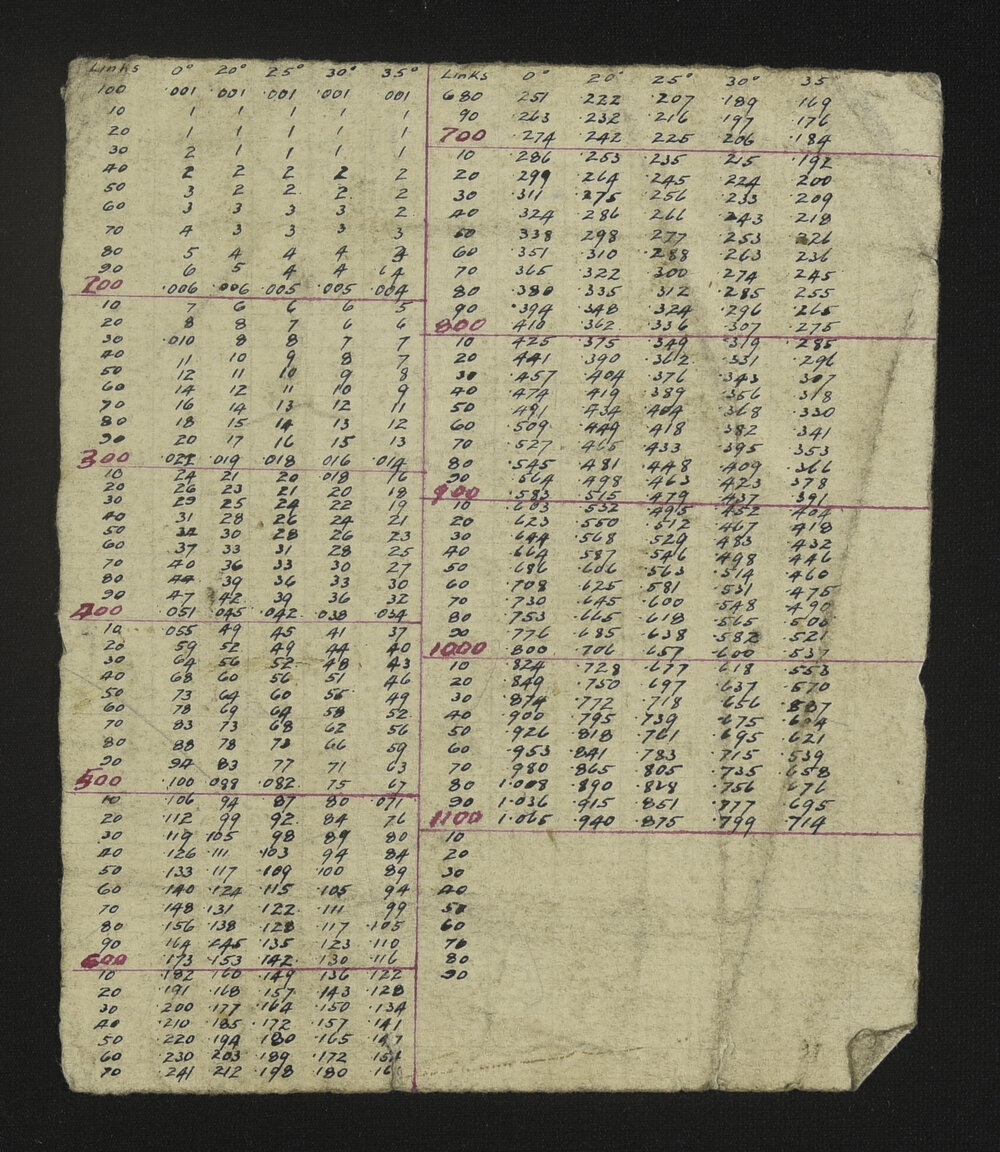 Links 0° 20° 25° 30° 35°
100 .001 .001 .001 .001 001
10 1 1 1 1 1
20 1 1 1 1 1
30 2 1 1 1 1
40 2 2 2 2 2
50 3 2 2 2 2
60 3 3 3 3 2
70 4 3 3 3 3
80 5 4 4 4
90 6 5 4 4 4
200 .006 .006 .005 .005 .004
10 7 6 6 6 5
20 8 8 7 6 6
30 .010 8 8 7 7
40 11 10 9 8 7
50 12 11 10 9 8
60 14 12 11 10 9
70 16 14 13 12 11
80 18 15 14 13 12
90 20 17 16 15 13
300 .022 .019 .018 016 .014
10 24 21 20 .018 16
20 26 23 21 20 18
30 29 25 24 22 19
40 31 28 26 24 21
50 30 28 26 23
60 37 33 31 28 25
70 40 36 33 30 27
80 44 39 36 33 30
90 47 42 39 36 32
400 .051 .045 .042 .038 .034
10 .055 49 45 41 37
20 59 52 49 44 40
30 64 56 52 48 43
40 68 60 56 51 46
50 73 64 60 55 49
60 78 69 64 58 52
70 83 73 68 62 56
80 88 78 73 66 59
90 94 83 77 71 63
500 .100 .088 .082 75 67
10 .106 94 87 80 .071
20 .112 99 92 84 76
30 .119 .105 98 89 80
40 .126 .111 .103 94 84
50 .133 .117 .109 .100 89
60 .140 .124 .115 .105 94
70 .148 .131 .122 .111 99
80 .156 .138 .128 .117 .105
90 .164 .145 .135 .123 .110
600 .173 .153 .142 .130 .116
10 .182 .160 .149 .136 .122
20 .191 .168 .157 .143 .128
30 .200 .177 .164 .150 .134
40 .210 .185 .172 .157 .141
50 .220 .194 .180 .165
60 .230 .203 .189 .172
70 .241 .212 .198 .180
Links 0° 20° 25° 30° 35
680 .251 .222 .207 .189 .169
90 .263 .232 .216 .197 .176
700 .274 .242 .225 .206 .184
10 .286 .253 .235 .215 .192
20 .299 .264 .245 .224 .200
30 .311 .275 .256 .233 .209
40 .324 .286 .266 .243 .218
50 .338 .298 .277 .253 .226
60 .351 .310 .288 .263 .236
70 .365 .322 .300 .274 .245
80 .380 .335 .312 .285 .255
90 .394 .348 .324 .296 .265
800 .410 .362 .336 .307 .275
10 .425 .375 .349 .319 .285
20 .441 .390 .362 .331 .296
30 .457 .404 .376 .343 .307
40 .474 .419 .389 .356 .318
50 .491 .434 .404 .368 .330
60 .509 .449 .418 .382 .341
70 .527 .465 .433 .395 .353
80 .545 .481 .448 .409 .366
90 .564 .498 .463 .423 .378
900 .583 .515 .479 .437 .391
10 .603 .532 .495 .452 .404
20 .623 .550 .512 .467 .418
30 .644 .568 .529 .483 .432
40 .664 .587 .546 .498 .446
50 .686 .606 .563 .514 .460
60 .708 .625 .581 .531 .475
70 .730 .645 .600 .548 .490
80 .753 .665 .618 .565 .506
90 .776 .685 .638 .582 .521
1000 .800 .706 .657 .600 .537
10 .824 .728 .677 .618 .553
20 .849 .750 .697 .637 .570
30 .874 .772 .718 .656
40 .900 .795 .739 .675 .604
50 .926 .818 .761 .695 .621
60 .953 .841 .783 .715 .539
70 .980 .865 .805 .735 .658
80 1.008 .890 .828 .756 .676
90 1.036 .915 .851 .777 .695
1100 1.065 .940 .875 .799 .714
10
20
30
40
50
60
70
80
90